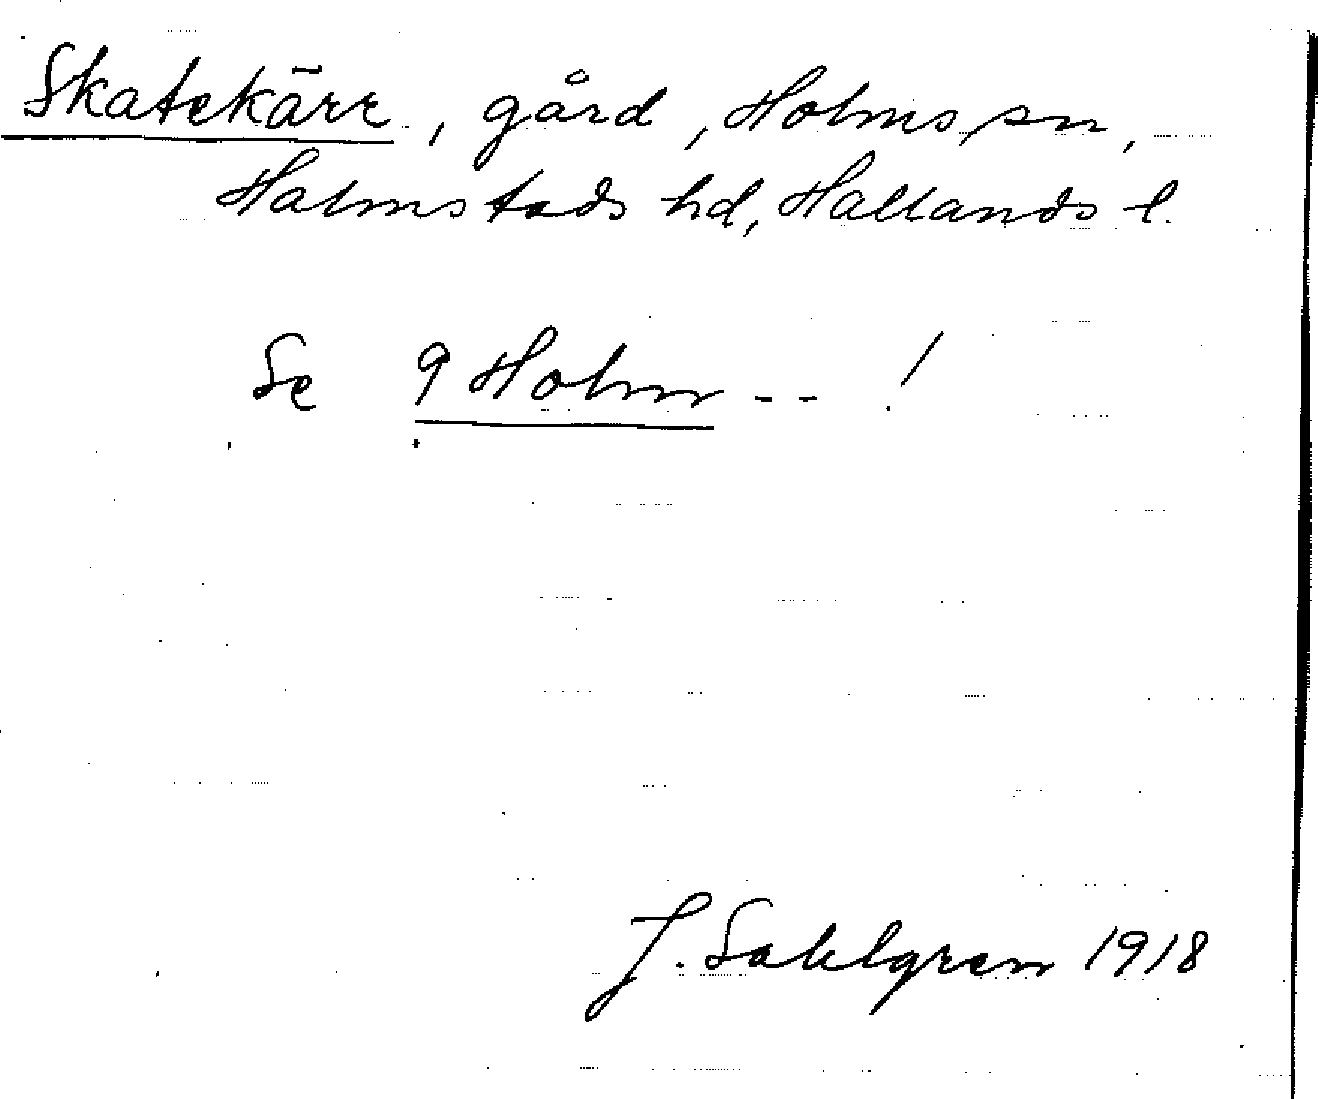 Skatekärr, gård, Holms sn,
Halmstads hd, Hallands l.
Se 9 Holm -- !
J. Sahlgren 1918